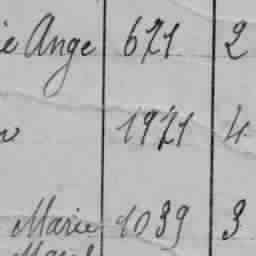 ie Ange 671 2
1971 4
Marie 1039 3